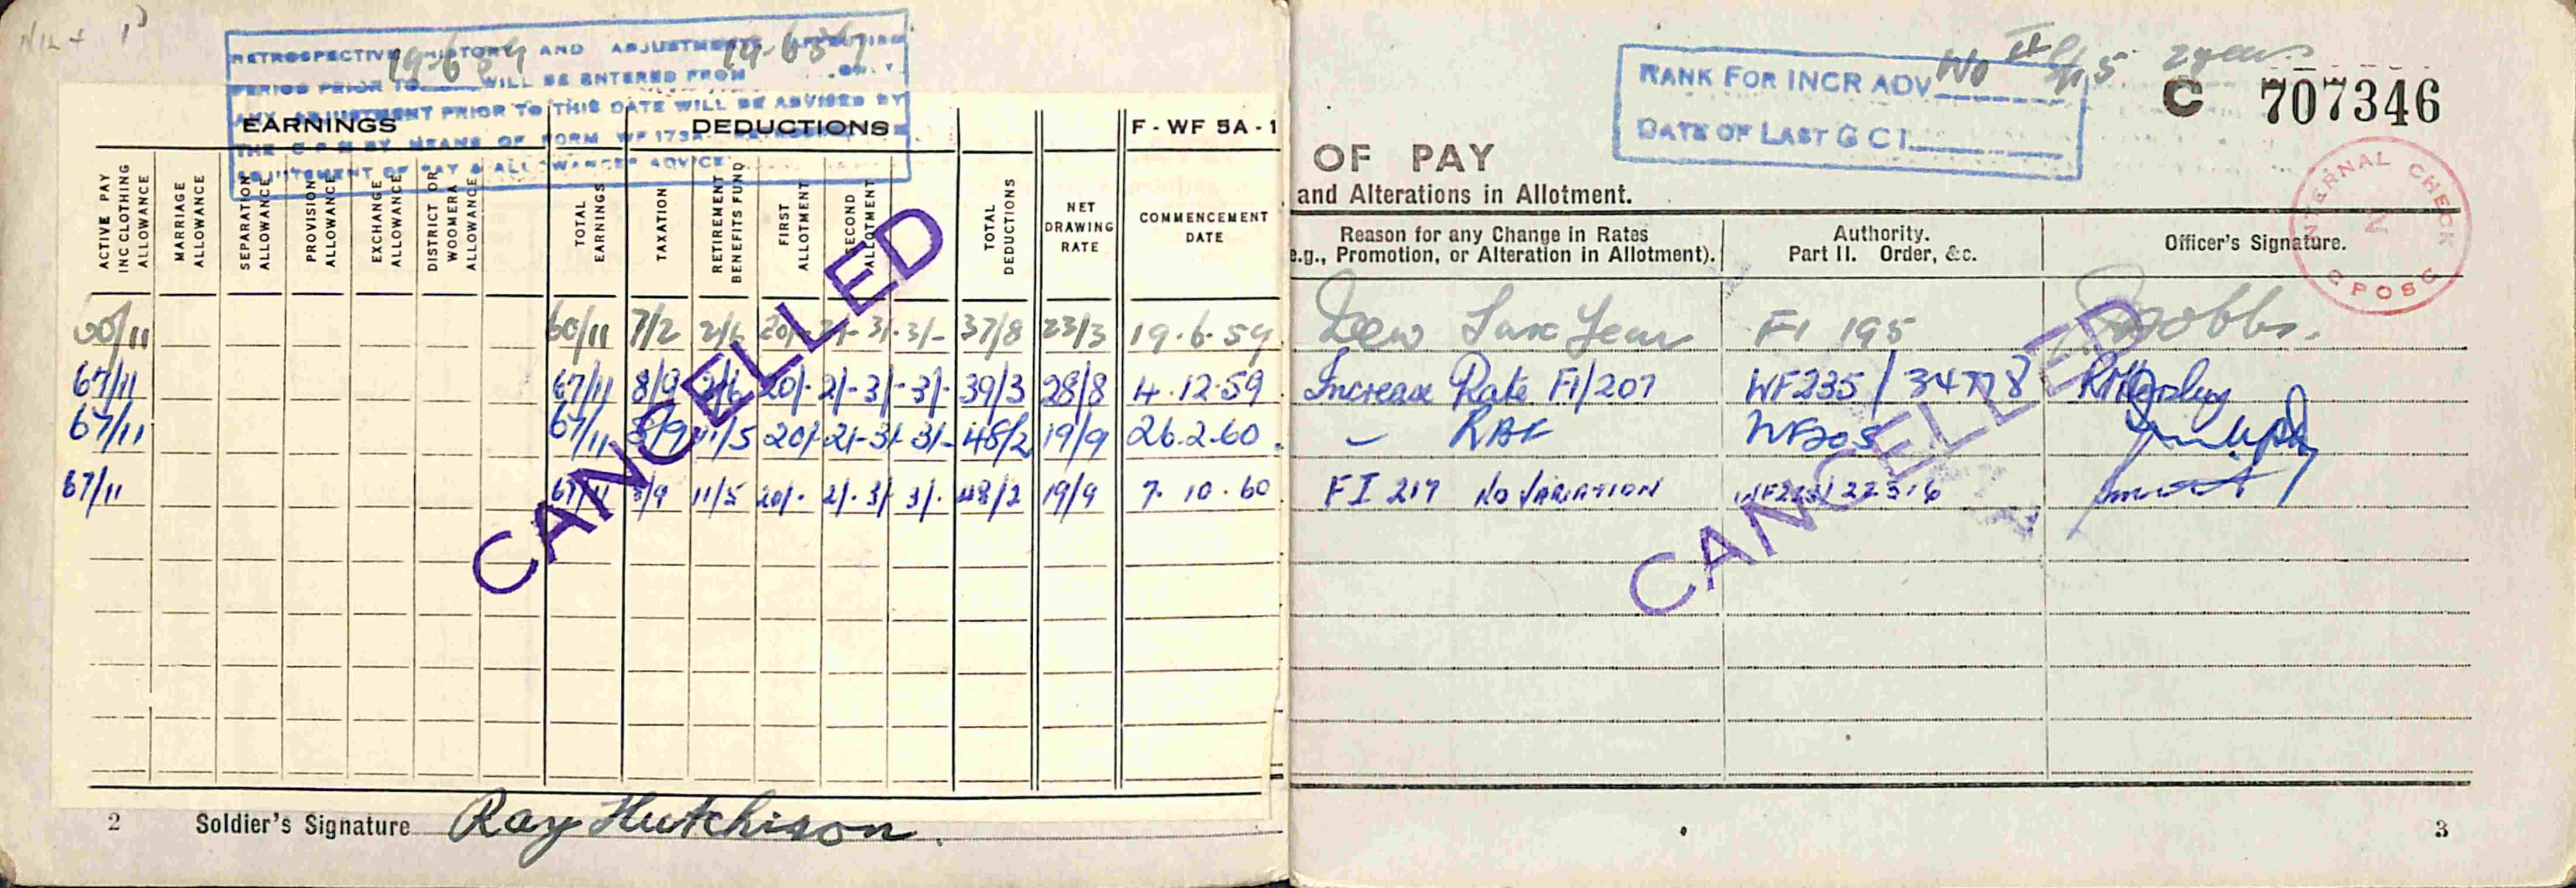 RETROSPECTIVE HISTORY AND ADJUSTMENTS AFFECTING
PERIOD PRIOR TO 19-6-59 WILL BE ENTERED FROM 19-6-59 ONLY.
ANY ADJUSTMENT PRIOR TO THIS DATE WILL BE ADVISED BY
THE C P M BY MEANS OF FORM WF 173A
ADJUSTMENT OF PAY & ALLOWANCES ADVICE
EARNINGS DEDUCTIONS F - WF 5A - 1
ACTIVE PAY INC CLOTHING ALLOWANCE
MARRIAGE ALLOWANCE
SEPARATION ALLOWANCE
PROVISION ALLOWANCE
EXCHANGE ALLOWANCE
DISTRICT OR WOOMERA ALLOWANCE
TOTAL EARNINGS
TAXATION
RETIREMENT BENEFITS FUND
FIRST ALLOTMENT
SECOND ALLOTMENT
TOTAL DEDUCTIONS
NET DRAWING RATE
COMMENCEMENT DATE
60/11 60/11 7/2 2/6 20/- 2/- 3/- 3/- 37/8 23/3 19.6.59
67/11 67/11 8/9 2/6 20/- 2/- 3/- 3/- 39/3 28/8 4.12.59
67/11 67/11 8/9 11/5 20/- 2/- 3/- 3/- 48/2 19/9 26.2.60
67/11 67/11 8/9 11/5 20/- 2/- 3/- 3/- 48/2 19/9 7.10.60
CANCELLED
2 Soldier's Signature Ray Hutchison.
RANK FOR INCR ADV No II 2 years
DATE OF LAST G C I
C 707346
INTERNAL CHECK
2
CPOSC
OF PAY
and Alterations in Allotment.
Reason for any Change in Rates
e.g., Promotion, or Alteration in Allotment).
Authority.
Part II. Order, &c.
Officer's Signature.
New Tax Year FI 195
Increase Rate FI/207 WF235/34778
FI 217 NO VARIATION
CANCELLED
3